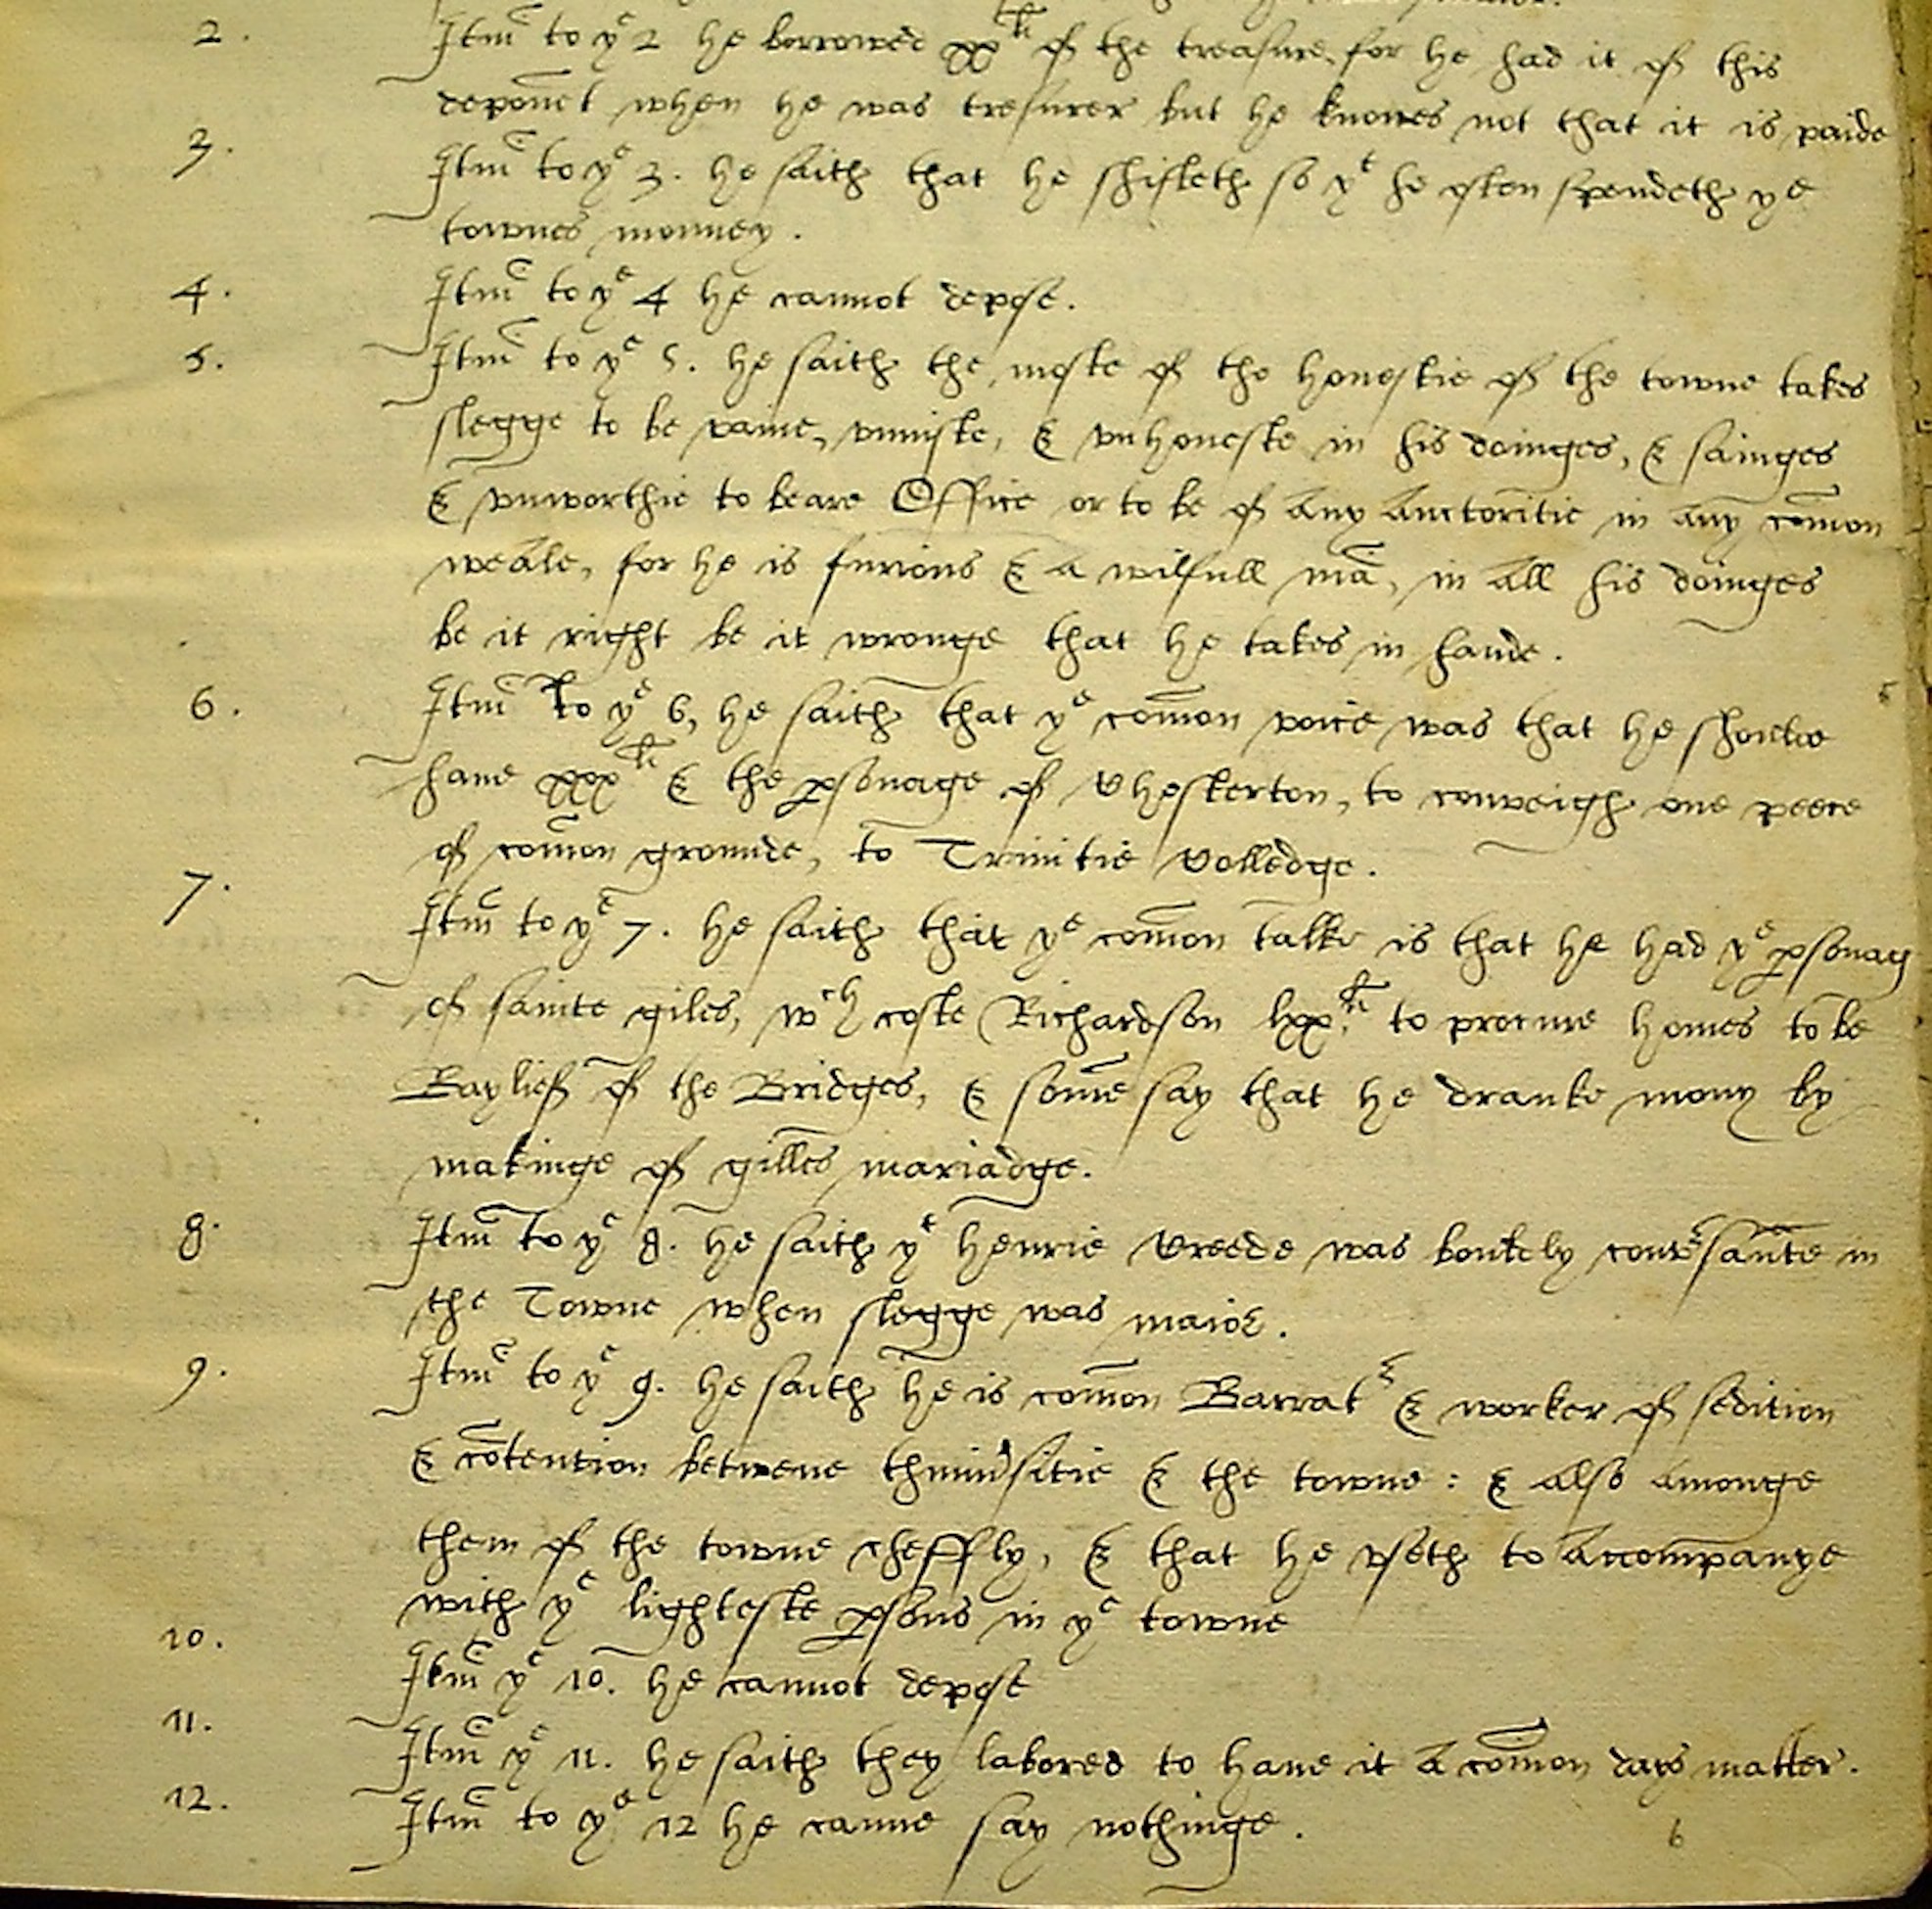 2. Itm̃ to yᵉ 2 he borrowed xxˡⁱ of the treasure, for he had it of this
deponẽt when he was tresurer but he knowes not that it is paide
3. Itm̃ to yᵉ 3. he saith that he shifteth so yᵗ he often spendeth yᵉ
townes monney.
4. Itm̃ to yᵉ 4 he cannot depose.
5. Itm̃ to yᵉ 5. he saith the moste of the honestie of the towne takes
slegge to be vaine, vniuste, & vnhoneste in his doinges, & sainges
& vnworthie to beare Office or to be of any Auctoritie in any com̄on
weale, for he is furious & a wilfull mā, in all his doinges
be it right be it wronge that he takes in hande.
6. Itm̃ to yᵉ 6, he saith that yᵉ com̄on voice was that he shoulde
haue xxxˡⁱ & the p̱sonage of Chesterton, to conveigh one peece
of com̄on grounde, to Trinitie Colledge.
7. Itm̃ to yᵉ 7. he saith that yᵉ com̄on talke is that he had yᵉ p̱sonag
of sainte giles, wᶜʰ coste Richardson lxxˡⁱ. to procure homes to be
Bayliefe of the Bridges, & some say that he dranke mony by
makinge of gilles mariadge.
8. Itm̃ to yᵉ 8. he saith yᵗ henrie Creede was boutely conv̾sante in
the Towne when slegge was maior.
9. Itm̃ to yᵉ 9. he saith he is com̄on Barratʳ & worker of sedition
& cōtention betwene thuniv̾sitie & the towne: & also amonge
them of the towne cheffly, & that he vseth to accompanye
with yᵉ lighteste p̱sons in yᵉ towne
10. Itm̃ yᵉ 10. he cannot depose
11. Itm̃ yᵉ 11. he saith they labored to haue it a com̄on days matter.
12. Itm̃ to yᵉ 12 he canne say nothinge.
6